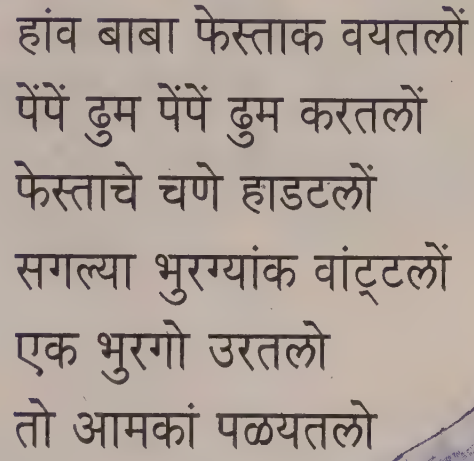 हांव बाबा फेस्ताक वयतलों
पेंपें ढुम पेंपें ढुम करतलों
फेस्ताचे चणे हाडटलों
सगल्या भुरग्यांक वांट्टलों
एक भुरगो उरतलो
तो आमकां पळयतलो